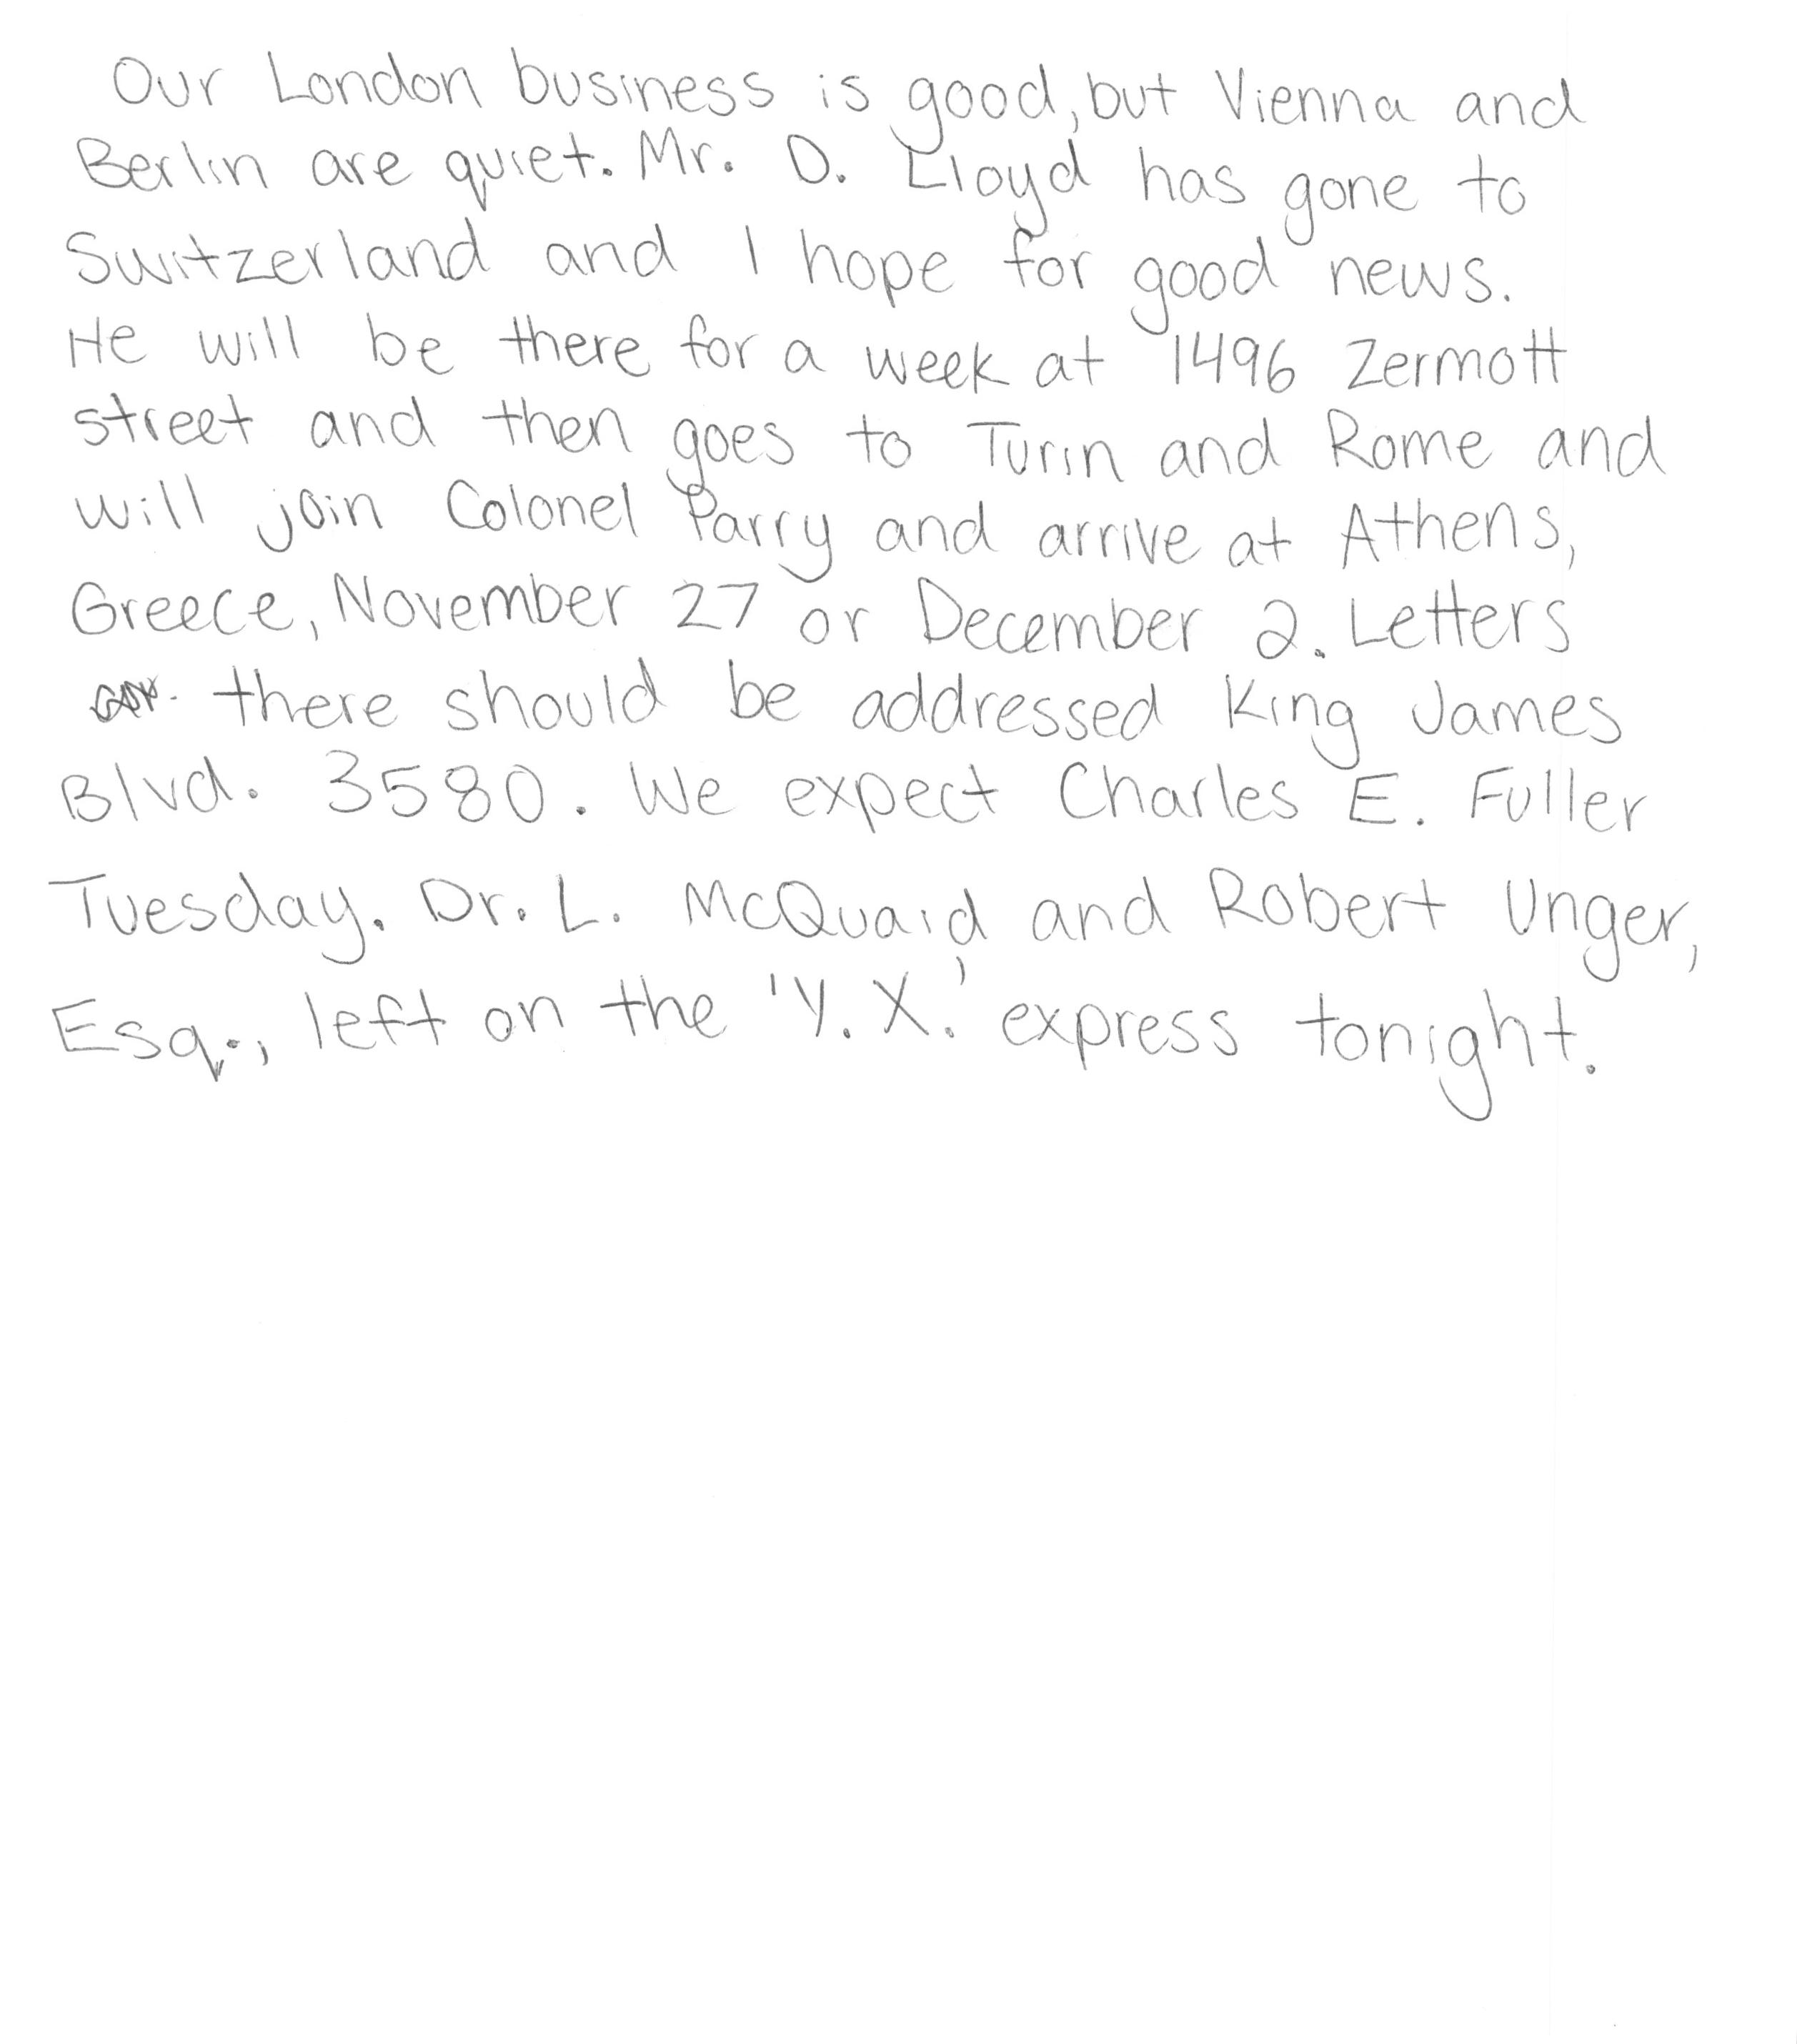 Our London business is good, but Vienna and
Berlin are quiet. Mr. D. Lloyd has gone to
Switzerland and I hope for good news.
He will be there for a week at 1496 Zermott
street and then goes to Turin and Rome and
will join Colonel Parry and arrive at Athens,
Greece, November 27 or December 2. Letters
there should be addressed King James
Blvd. 3580. We expect Charles E. Fuller
Tuesday. Dr. L. McQuaid and Robert Unger,
Esq., left on the 'Y.X.' express tonight.